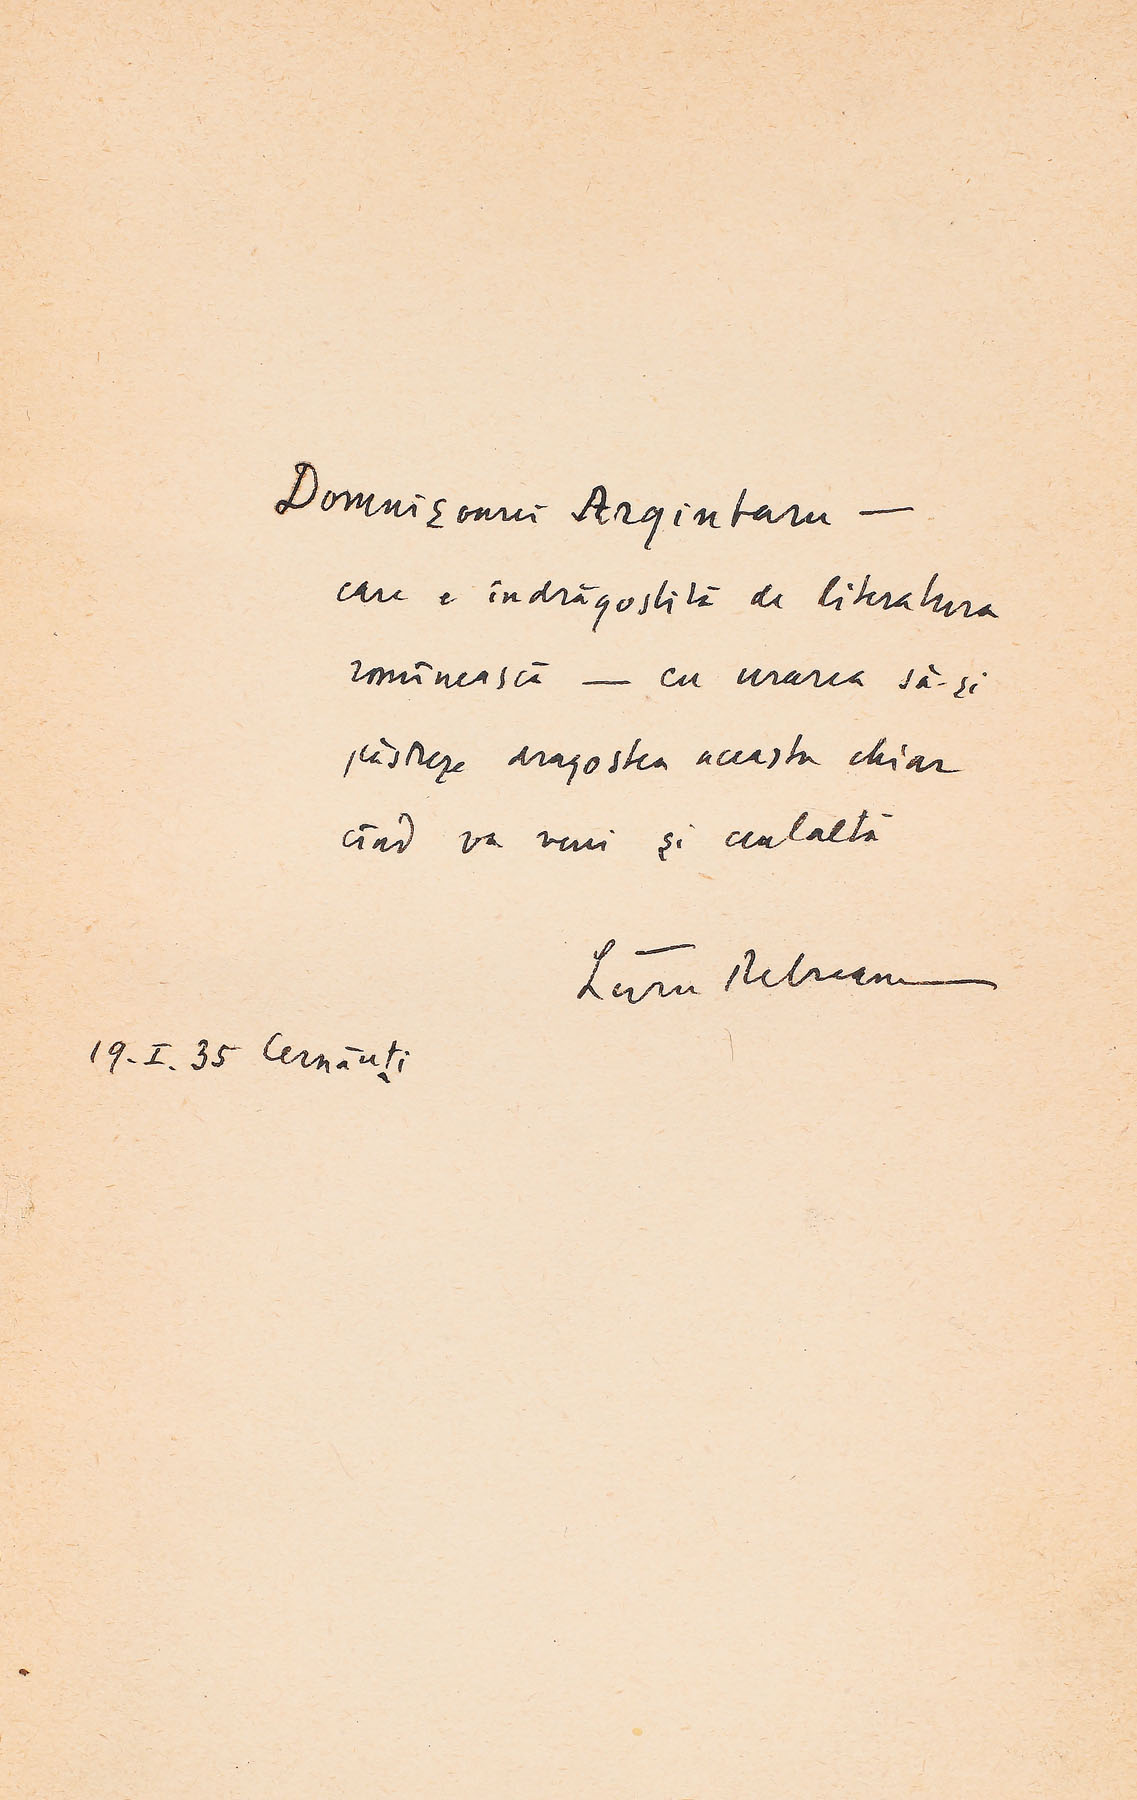 Domnișoarei Argintaru —
care e îndrăgostită de literatura
românească — cu urarea să-și
păstreze dragostea aceasta chiar
cînd va veni și cealaltă
Liviu Rebreanu
19. I. 35 Cernăuți